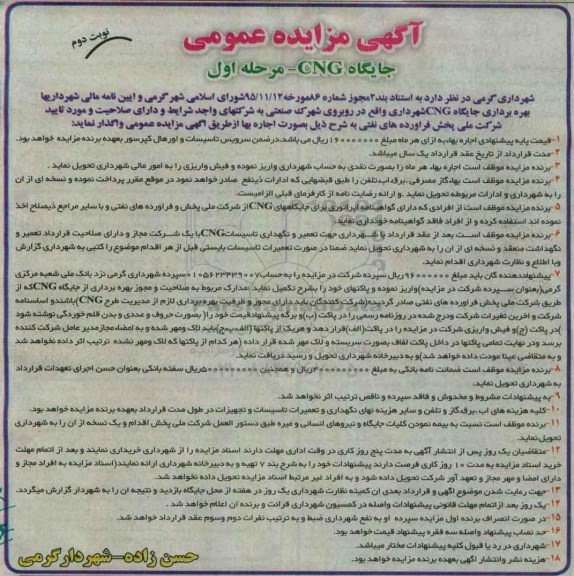 آگهی مزایده عمومی
نوبت دوم
جایگاه CNG- مرحله اول
شهرداری گرمی در نظر دارد به استناد بند۲مجوز شماره ۸۶مورخه ۹۵/۱۱/۱۲شورای اسلامی شهر گرمی و آیین نامه مالی شهرداریها
بهره برداری جایگاه CNGشهرداری واقع در روبروی شهرک صنعتی به شرکتهای واجد شرایط و دارای صلاحیت و مورد تایید
شرکت ملی پخش فراورده های نفتی به شرح ذیل بصورت اجاره بها ازطریق آگهی مزایده عمومی واگذار نماید:
۱-قیمت پایه پیشنهادی اجاره بهاءبه ازای هر ماه مبلغ ۱۶۰۰۰۰۰۰۰ریال می باشد.درضمن سرویس تاسیسات و اورهال کپرسور بعهده برنده مزایده خواهد بود.
۲- مدت قرارداد از تاریخ عقد قرارداد یک سال میباشد.
۳- برنده مزایده موظف است اجاره بهاء هر ماه را بصورت نقدی به حساب شهرداری واریز نموده و فیش واریزی را به امور مالی شهرداری تحویل نماید.
۴- برنده مزایده موظف است بهاءگاز مصرفی،برق،آب،تلفن را طبق قبضهایی که ادارات ذینفع صادر خواهد نمود در موقع مقرر پرداخت نموده و نسخه ای از آن
را به شهرداری و ادارات مربوطه تحویل نماید.و ارائه رضایت نامه از کارفرمای قبلی الزامیست.
۵- برنده مزایده موظف است از افرادی که دارای گواهینامه اپراتوری برای جایگاههای CNGاز شرکت ملی پخش و فراورده های نفتی و با سایر مراجع ذیصلاح اخذ
نموده اند استفاده کرده و از افراد فاقد گواهینامه خودداری نماید.
۶- برنده مزایده موظف است بعد از عقد قرارداد با شهرداری جهت تعمیر و نگهداری تاسیساتCNGبا یک شرکت مجاز و دارای صلاحیت قرارداد تعمیر و
نگهداشت منعقد و نسخه ای از آن را به شهرداری تحویل نماید ضمنا در صورت تعمیرات تاسیسات بایستی قبل از هر اقدام موضوع را کتبی به شهرداری گزارش
وبا اطلاع و نظارت شهرداری اقدام نماید.
۷- پیشنهاددهنده گان باید مبلغ ۹۶۰۰۰۰۰۰ریال سپرده شرکت در مزایده را به حساب سپرده شهرداری گرمی نزد بانک ملی شعبه مرکزی
گرمی(بعنوان سپرده شرکت در مزایده)واریز نموده و پاکتهای خود را بشرح تکمیل نماید:مدارک مربوط به صلاحیت و مجوز بهره برداری از جایگاه CNGکه از
طریق شرکت ملی پخش فراورده های نفتی صادر گردیده(شرکت کنندگان باید دارای مجوز و ظرفیت بهره برداری لازم از مدیریت طرح CNG)باشندو اساسنامه
شرکت و آخرین تغیرات شرکت ودرج شده در روزنامه رسمی را در پاکت (ب)و برگه پیشنهادقیمت خود را( بصورت حروف و عددی و بدن قلم خوردگی نوشته شود
)در پاکت (ج)و فیش واریزی شرکت در مزایده را در پاکت(الف)قرار دهد و هریک از پاکتها (الف،ب،ج)باید لاک ومهر شده و به امضاءمجازمدیر عامل شرکت کننده
برسد ودر نهایت تمامی پاکتها در داخل پاکت لفاف بصورت سربسته و لاک مهر شده قرار داده (هر کدام از پاکتها که لاک ومهر نشده ترتیب اثر داده نخواهد شد
و به متقاضی عینا عودت داده خواهد شد)و به دبیرخانه شهرداری تحویل و رسید دریافت نماید.
۸-برنده مزایده موظف است ضمانت نامه بانکی به مبلغ ریال و همچنین ریال سفته بانکی بعنوان حسن اجرای تعهدات قرارداد
به شهرداری تحویل نماید.
۹-به پیشنهادات مشروط و مخدوش و فاقد سپرده و ناقص ترتیب اثر نخواهد شد.
۱۰-کلیه هزینه های آب،برق،گاز و تلفن و سایر هزینه نهای نگهداری و تعمیرات تاسیسات و تجهیزات در طول مدت قرارداد بعهده برنده مزایده خواهد بود.
۱۱-برنده موظف است نسبت به بیمه نمودن کلیات جایگاه و نیروهای انسانی و غیره طبق دستور العمل شرکت ملی پخش اقدام و یک نسخه از آن را به شهرداری
تحویل نماید.
۱۲- متقاضیان یک روز پس از انتشار آگهی به مدت پنج روز کاری در وقت اداری مهلت دارند اسناد مزایده را از شهرداری خریداری نمایند و بعد از اتمام مهلت
خرید اسناد مزایده به مدت ۱۰ روز کاری فرصت دارند پیشنهادات خود را به شرح بند ۷ تهیه و به دبیرخانه شهرداری ارائه نمایند(اسناد مزایده به افراد مجاز و
دارای امضا و مهر مجاز و تعهد آور شرکت تحویل داده شود و به افراد غیر مرتبط اسناد مزایده تحویل داده نخواهد شد.
۱۳-جهت رعایت شدن موضوع آگهی و قرارداد بعدی ان کمیته نظارت شهرداری یک روز در هفته از محل جایگاه بازدید و نتیجه ان را به شهردار گزارش میگردد.
۱۴- یک روز بعد ازاتمام مهلت قانونی پیشنهادات واصله در کمسیون شهرداری قرائت و برنده ان اعلام خواهد شد.
۱۵-در صورت انصراف برنده اول مزایده سپرده او به نفع شهرداری ضبط و به ترتیب نفرات دوم وسوم عقد قرارداد خواهد شد.
۱۶- حد نصاب پیشنهاد واصله سه فقره پیشنهاد قیمت خواهد بود.
۱۷- شهرداری در رد یا قبول کلیه پیشنهادات مختار میباشد.
۱۸- هزینه نشر وانتشار آگهی بعهده برنده مزایده خواهد بود.
حسن زاده-شهردارگرمی